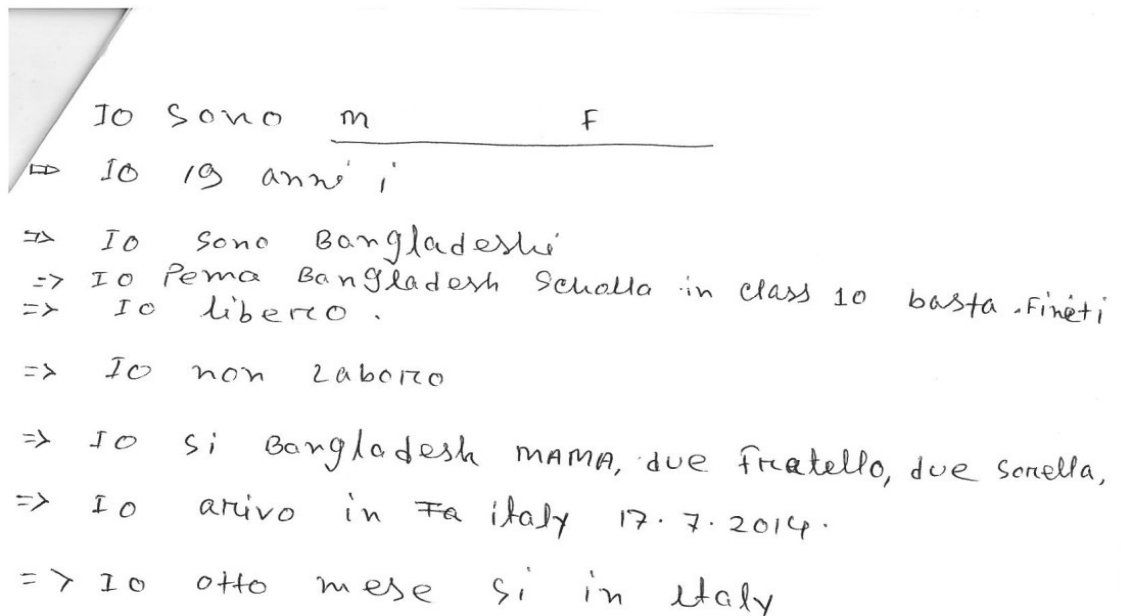 Io sono m F
⇒ Io 19 anni i
⇒ Io sono Bangladeshi
=> Io Pema Bangladesh Scholla in class 10 basta . Fineti
=> Io libero .
=> Io non Laboro
=> Io si Bangladesh MAMA, due fratello, due sorella,
=> Io arivo in Fa italy 17. 7. 2014.
=> Io otto mese si in italy